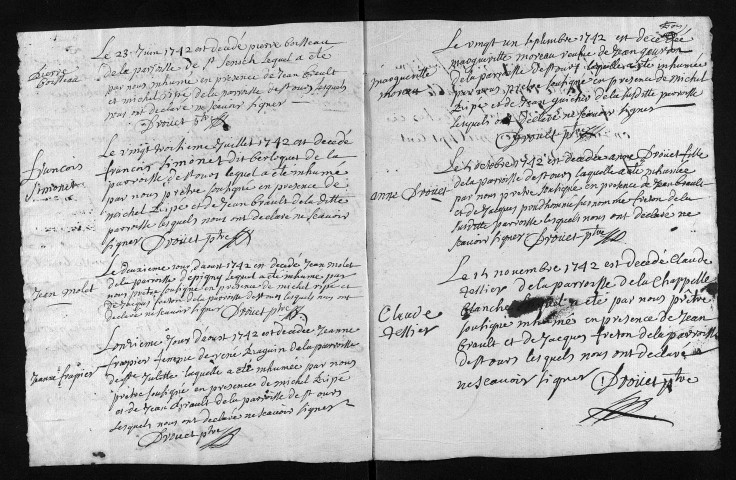 Le 23e Juin 1742 est decedé pierre boisseau
de la parroisse de St Senoch lequel a eté
par nous inhumé en presence de Jean Brault
et michel Ripé de la parroisse de st ours lesquels
nous ont declaré ne scavoir signer
Drouet ptre
pierre
boisseau
Le vingt Juillet 1742 est decedé
francois Simonet dit berloquet de la
parroisse de st ours lequel a eté inhumé
par nous prêtre soussigné en presence de
michel Ripé et de Jean Brault de la ditte
parroisse lesquels nous ont declaré ne scavoir
signer Drouet ptre
francois
Simonet
Le deuxieme jour daoust 1742 est decedé Jean molet
de la parroisse lequel a eté inhumé par
nous prêtre soussigné en presence de michel ripé et
de Jacques freton de la parroisse de st ours nous ont
declaré ne scavoir signer Drouet ptre
Jean molet
Lonzieme Jour daoust 1742 est decedée Jeanne
frapier femme de rené Daguin de la parroisse
de ste Julitte laquelle a eté inhumée par nous
prêtre soussigné en presence de michel Ripé
et de Jean Brault de la parroisse de st ours
lesquels nous ont declaré ne scavoir signer
Drouet ptre
Jeanne frapier
Le vingt un septembre 1742 est decedée
margueritte moreau veufve de Jean
de la parroisse de st ours laquelle a eté inhumée
par nous prêtre soussigné en presence de michel
Ripé et de Jean guichet de la susditte parroisse
lesquels nous ont declaré ne scavoir signer
Drouet ptre
margueritte
moreau
Le 4 octobre 1742 est decedée anne Drouet fille
de la parroisse de st ours laquelle a eté inhumée
par nous prêtre soussigné en presence de Jean Brault
et de Jacques prudhomme surnommé freton de la
susditte parroisse lesquels nous ont declaré ne
scavoir signer Drouet ptre
anne Drouet
Le 14 novembre 1742 est decedé Claude
tellier de la parroisse de la Chappelle
blanche lequel a eté par nous prêtre
soussigné inhumé en presence de Jean
Brault et de Jacques freton de la parroisse
de st ours lesquels nous ont declaré
ne scavoir signer Drouet ptre
Claude
tellier